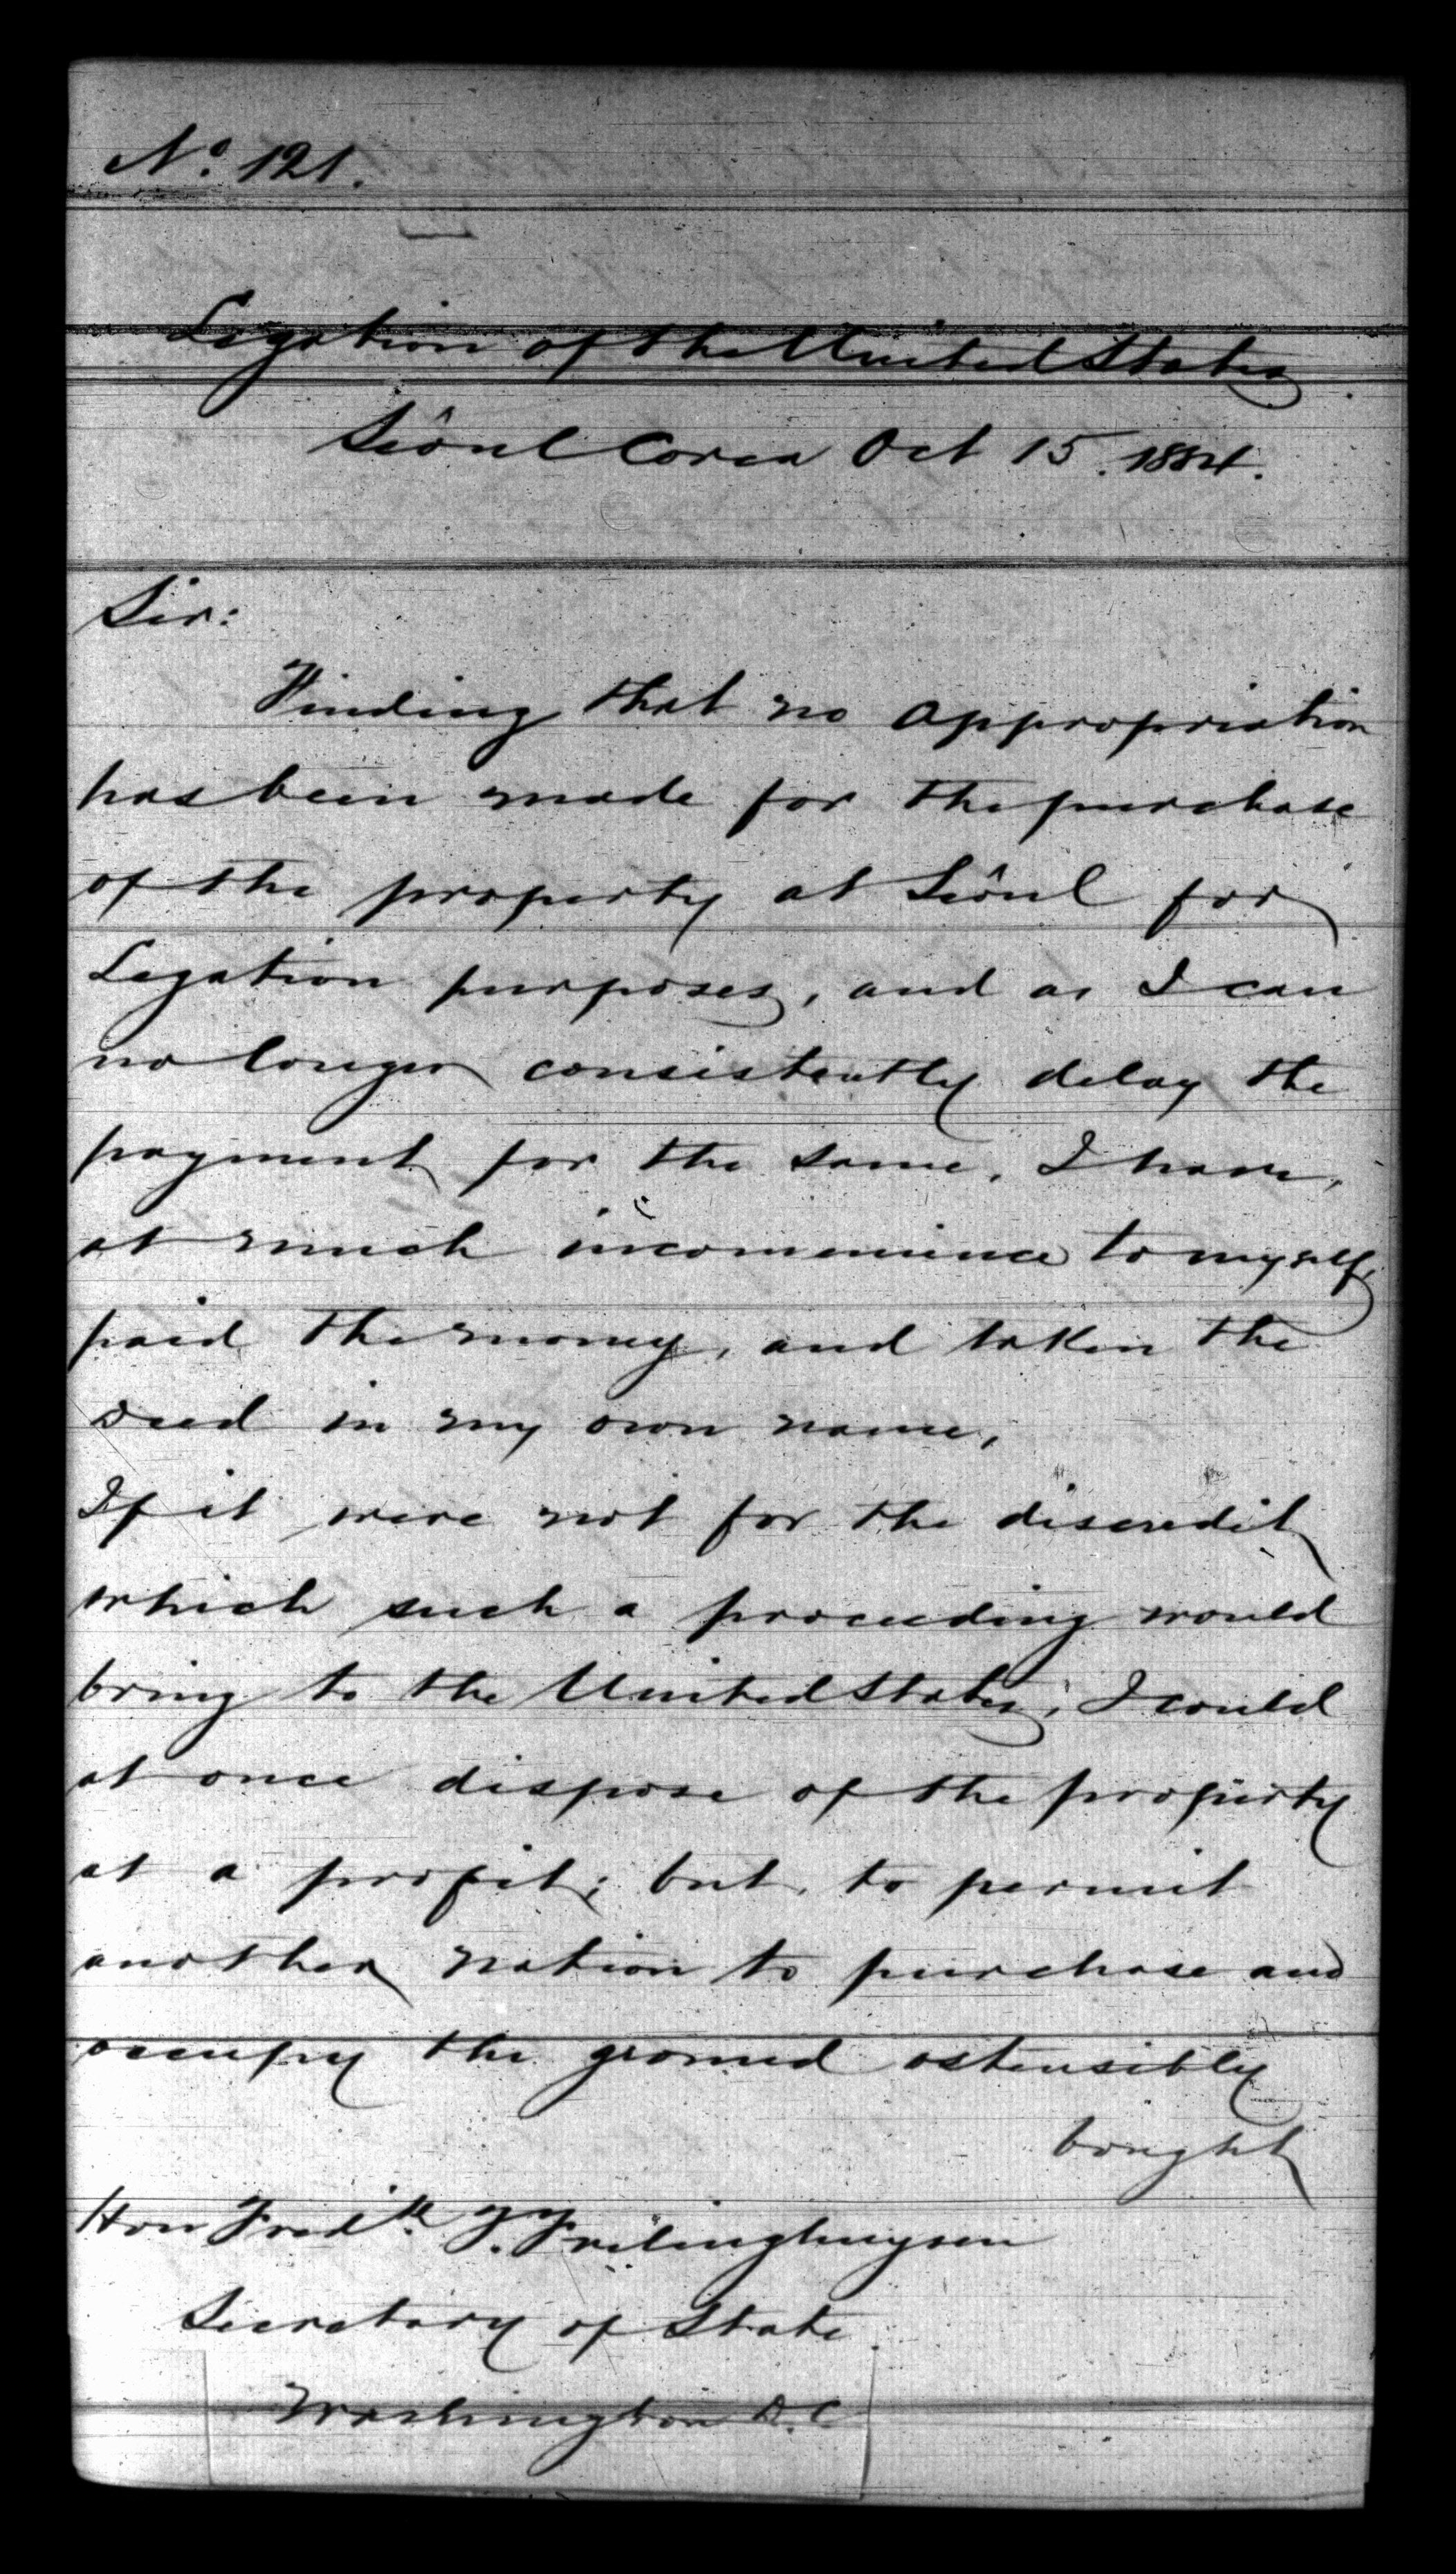 No. 121.
Legation of the United States.
Seôul Corea Oct 15. 1884.
Sir:
Finding that no appropriation
has been made for the purchase
of the property at Seôul for
Legation purposes, and as I can
no longer consistently delay the
payment for the same, I have,
at much inconvenience to myself,
paid the money, and taken the
deed in my own name.
If it were not for the discredit
which such a proceeding would
bring to the United States, I could
at once dispose of the property
at a profit; but, to permit
another nation to purchase and
occupy the ground ostensibly
bought
Hon Fredk. T. Frelinghuysen
Secretary of State.
Washington D.C